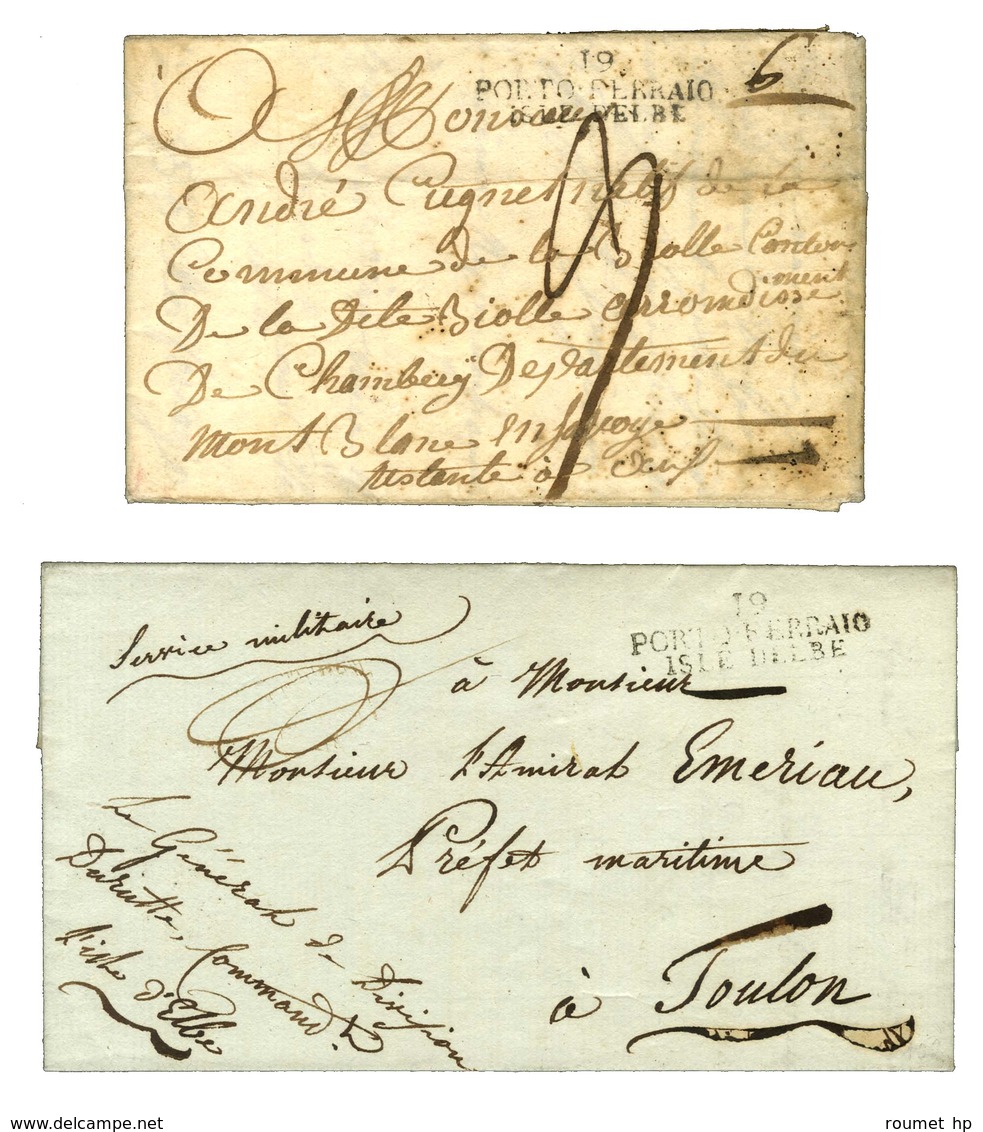 19
PORTO-FERRAIO
ISLE DELBE
6
A Monsieur
André Cugnet natif de la
Commune de la Biolle Canton
De la Dite Biolle arromdisse
ment
De Chambery Departement du
mont Blanc en Savoye
restente à
19
PORTO-FERRAIO
ISLE DELBE
Service militaire
à Monsieur
Monsieur l'Amiral Emeriau,
Préfet maritime
à Toulon
Le Général de Division
Durutte, Command.t
l'isle d'Elbe
www.delcampe.net
roumet hp